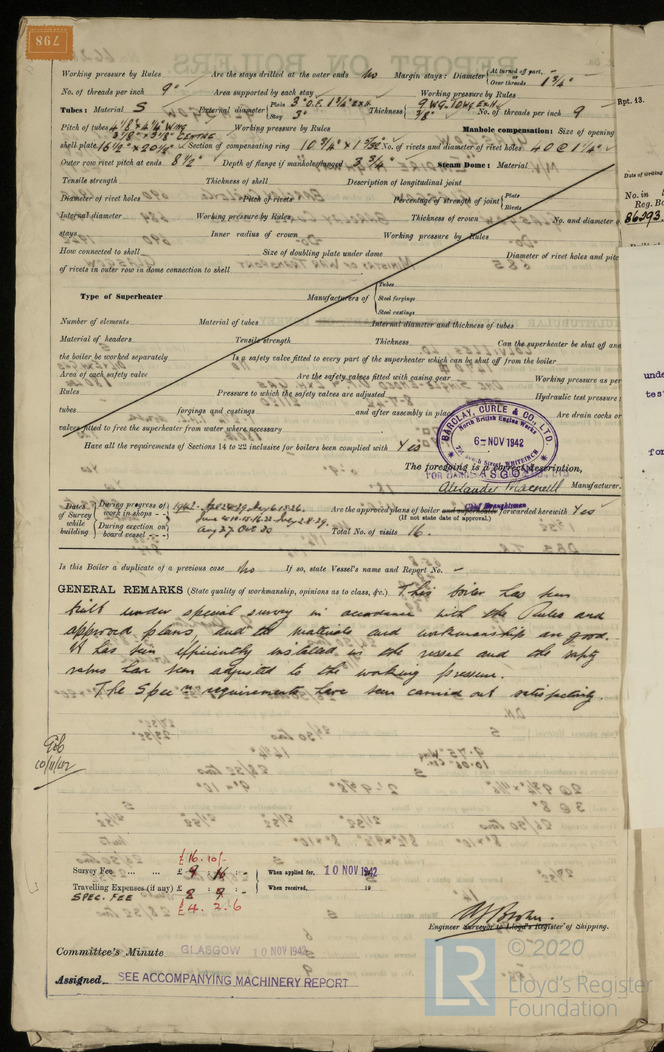 798
Working pressure by Rules Are the stays drilled at the outer ends No Margin stays: Diameter { At turned off part, or Over threads 1 3/4"
No. of threads per inch 9" Area supported by each stay Working pressure by Rules
Tubes: Material S External diameter { Plain 3" O.F. 1 3/4" Ex H. Stay 3" Thickness { 9 WG. 10 WG Ex H 3/8" No. of threads per inch 9
Pitch of tubes 4 1/8" x 4 1/4" Wing 3 7/8" x 3 7/8" Centre Working pressure by Rules Manhole compensation: Size of opening
shell plate 16 1/2" x 20 1/2" Section of compensating ring No. of rivets and diameter of rivet holes 40 @ 1 1/4"
Outer row rivet pitch at ends 8 1/2" Depth of flange if manhole flanged 3 3/4" Steam Dome: Material
Tensile strength Thickness of shell Description of longitudinal joint
Diameter of rivet holes Pitch of rivets Percentage of strength of joint { Plate Rivets
Internal diameter Working pressure by Rules Thickness of crown No. and diameter
stays Inner radius of crown Working pressure by Rules
How connected to shell Size of doubling plate under dome Diameter of rivet holes and pitc
of rivets in outer row in dome connection to shell
Type of Superheater Manufacturers of { Tubes Steel forgings Steel castings
Number of elements Material of tubes Internal diameter and thickness of tubes
Material of headers Tensile strength Thickness Can the superheater be shut off and
the boiler be worked separately Is a safety valve fitted to every part of the superheater which can be shut off from the boiler
Area of each safety valve Are the safety valves fitted with easing gear Working pressure as per
Rules Pressure to which the safety valves are adjusted Hydraulic test pressure:
tubes forgings and castings and after assembly in place Are drain cocks or
valves fitted to free the superheater from water where necessary
Have all the requirements of Sections 14 to 22 inclusive for boilers been complied with Yes
BARCLAY, CURLE & CO. LTD.
North British Engine Works
6-NOV 1942
South Street, Whiteinch
GLASGOW
The foregoing is a correct description,
Alexander Macneill Manufacturer.
Chief Draughtsman
Dates of Survey while building { During progress of work in shops - - 1942:- Apr 24. 29. May 6. 18. 26.
June
During erection on board vessel - - - Aug 27. Oct 30
Are the approved plans of boiler and superheater forwarded herewith Yes
(If not state date of approval.)
Total No. of visits 16.
Is this Boiler a duplicate of a previous case No If so, state Vessel's name and Report No. -
GENERAL REMARKS (State quality of workmanship, opinions as to class, &c.) This boiler has been
built under special survey in accordance with the Rules and
approved plans, and the materials and workmanship are good.
It has been efficiently installed in the vessel and the safety
valves have been adjusted to the working pressure.
The Spec requirements have been carried out satisfactorily.
10/11/42
£16. 10/-
Survey Fee ... ... £ 9 16 : - When applied for, 10 NOV 1942
Travelling Expenses (if any) £ 8 9 : - When received, 19
SPEC. FEE
£4. 2. 6
Engineer Surveyor to Lloyd's Register of Shipping.
Committee's Minute GLASGOW 10 NOV 1942
Assigned SEE ACCOMPANYING MACHINERY REPORT
Rpt. 13.
Date of writing
No. in
Reg. Bo
86293
unde
test
for
© 2020
LR
Lloyd's Register
Foundation